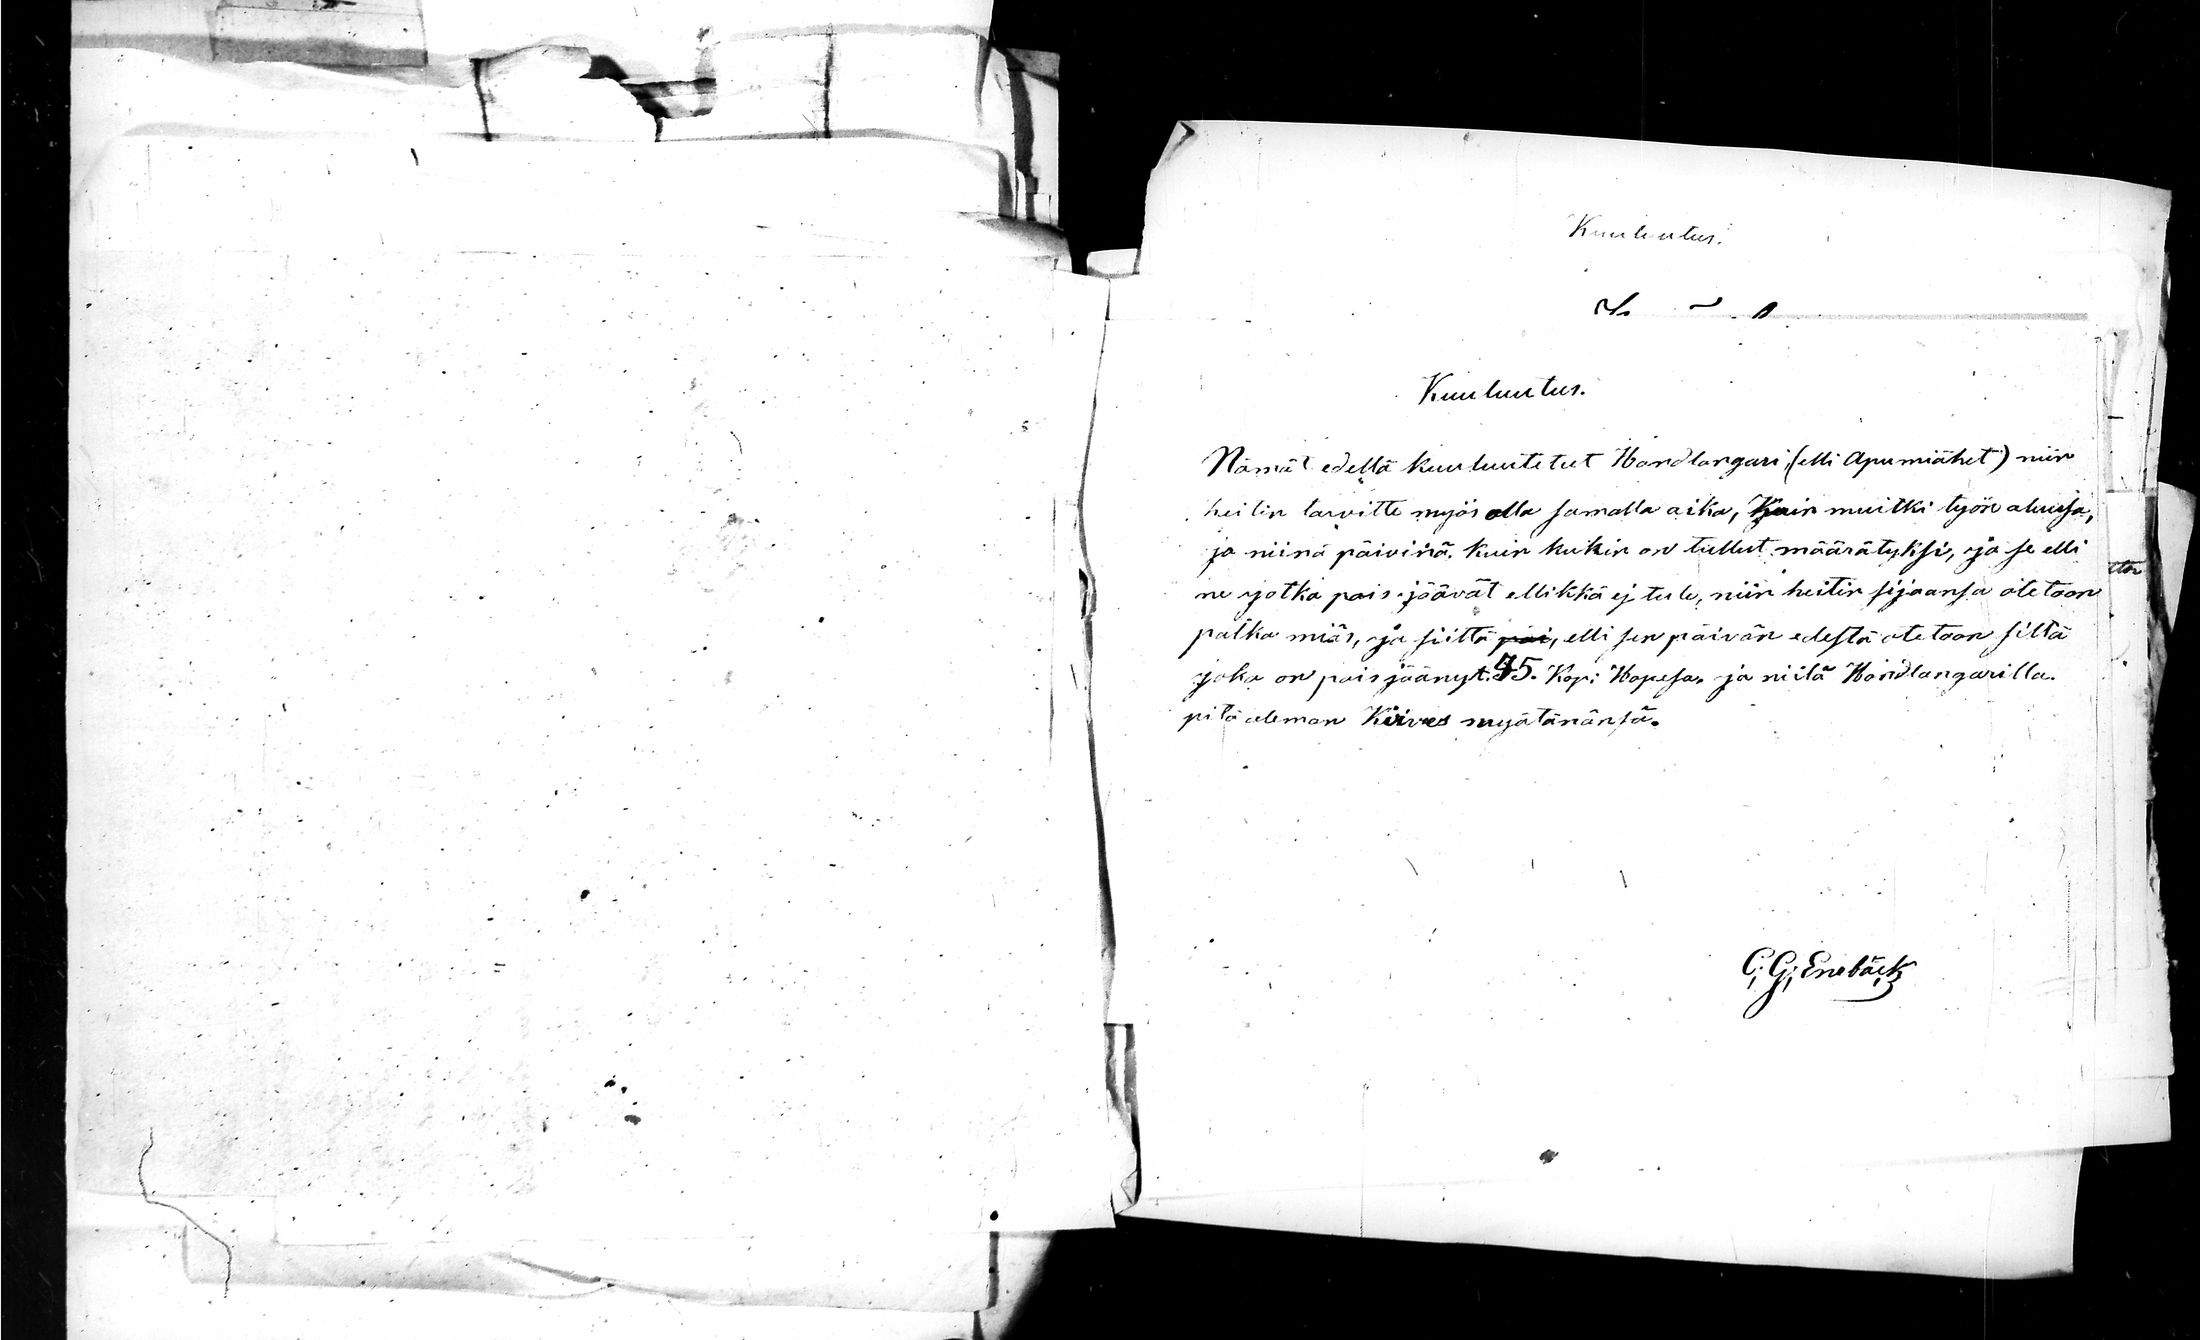 Kuuluutus.
Kuuluutus.
Nämät edellä kuuluutetut Handlangari, (elli Apumiähet) niin
heitin tarvitte myös olla samalla aika, Kuin muitki työn alusa,
ja niinä päivinä. kuin kukin on tullut määrätyksi, ja se elli
ne jotka pois jäävät ellikkä ej tule, niin heitin sijaansa otetaan
palka miäs, ja siittä pai, elli sen päivän edestä otetaan siltä
joka on pois jäänyt. 45. Kop: Hopesa. ja niilä Handlangarilla.
pitä oleman Kirves myätänänsä.
C; G; Enebäck